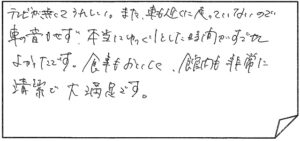 テレビが無くてうれしい。また、車も近くに走っていないので
車の音がせず、本当にゆっくりとした時間がすごせ
よかったです。食事もおいしく、館内も非常に
清潔で大満足です。